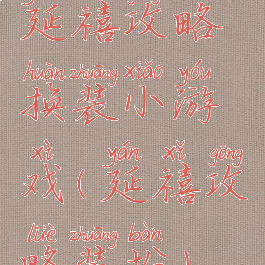 延禧攻略
huàn zhuāng xiǎo yóu
换装小游
xì yán xǐ gōng
戏(延禧攻
lüè zhuāng bàn
略装扮)